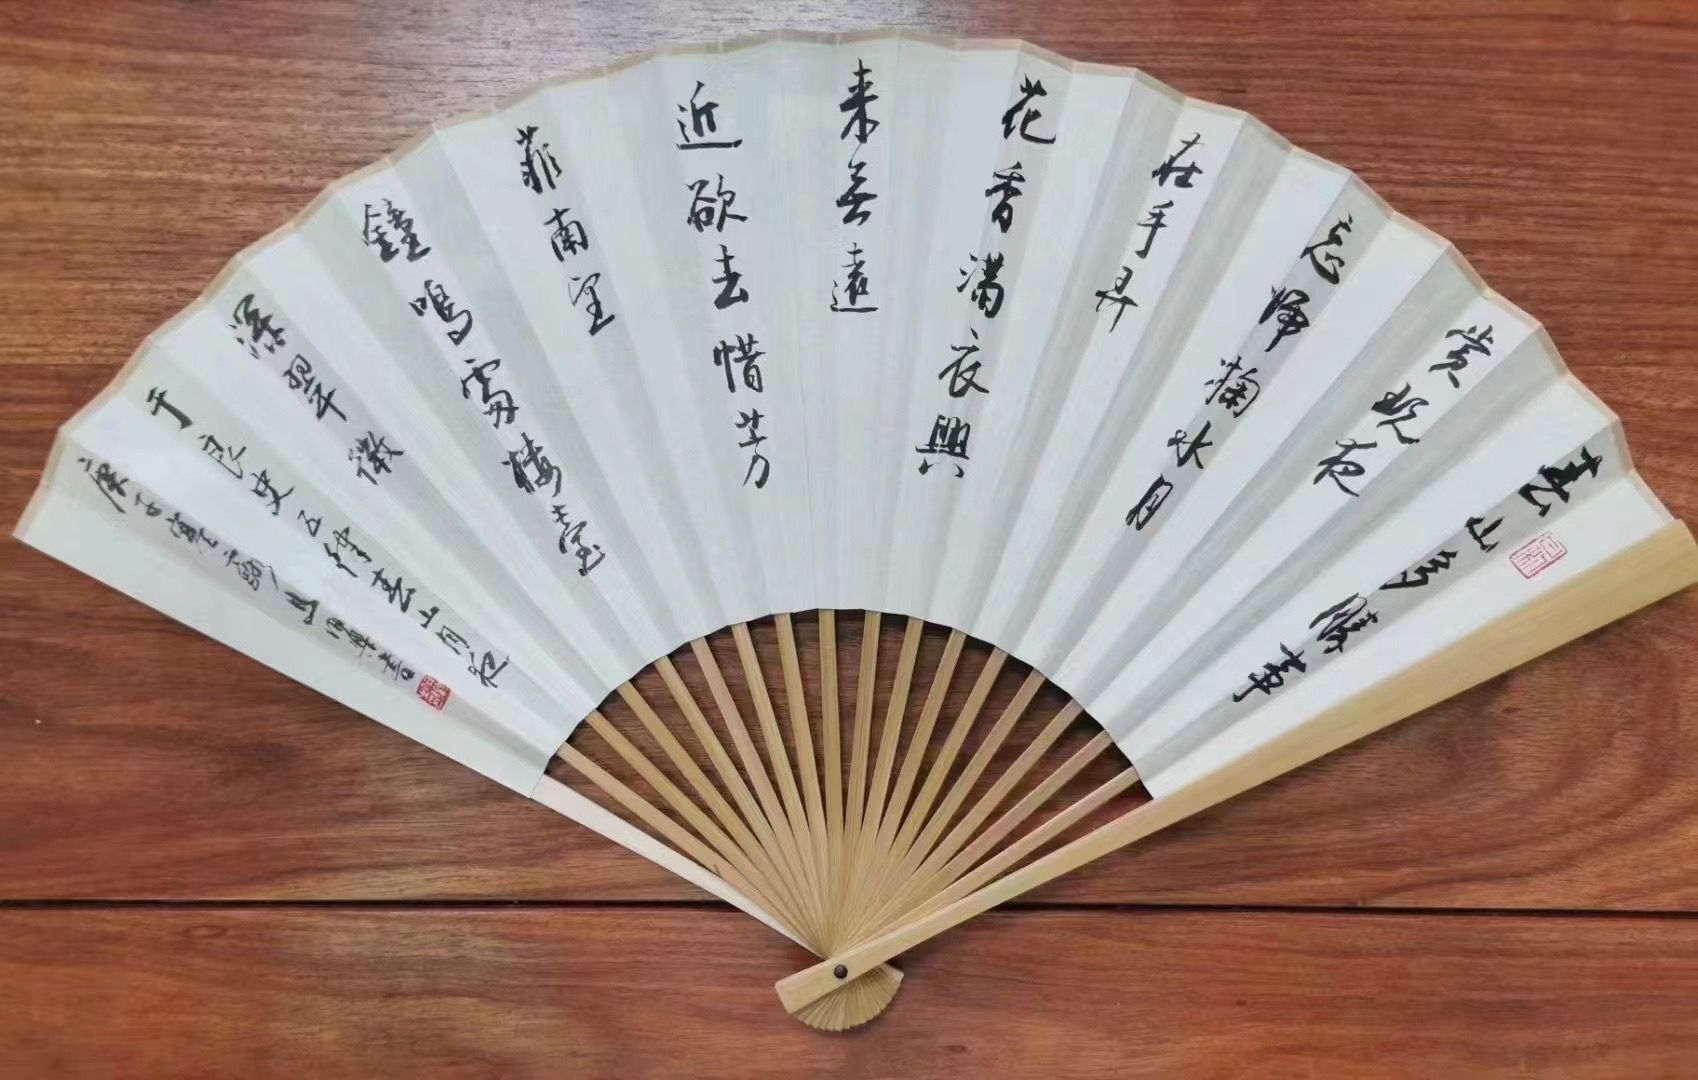 春山多勝事
賞玩夜
忘歸掬水月
在手弄
花香滿衣興
来無遠
近欲去惜芳
菲南望
鐘鳴處樓臺
深翠微
于良史五律春山月夜
庚子 書